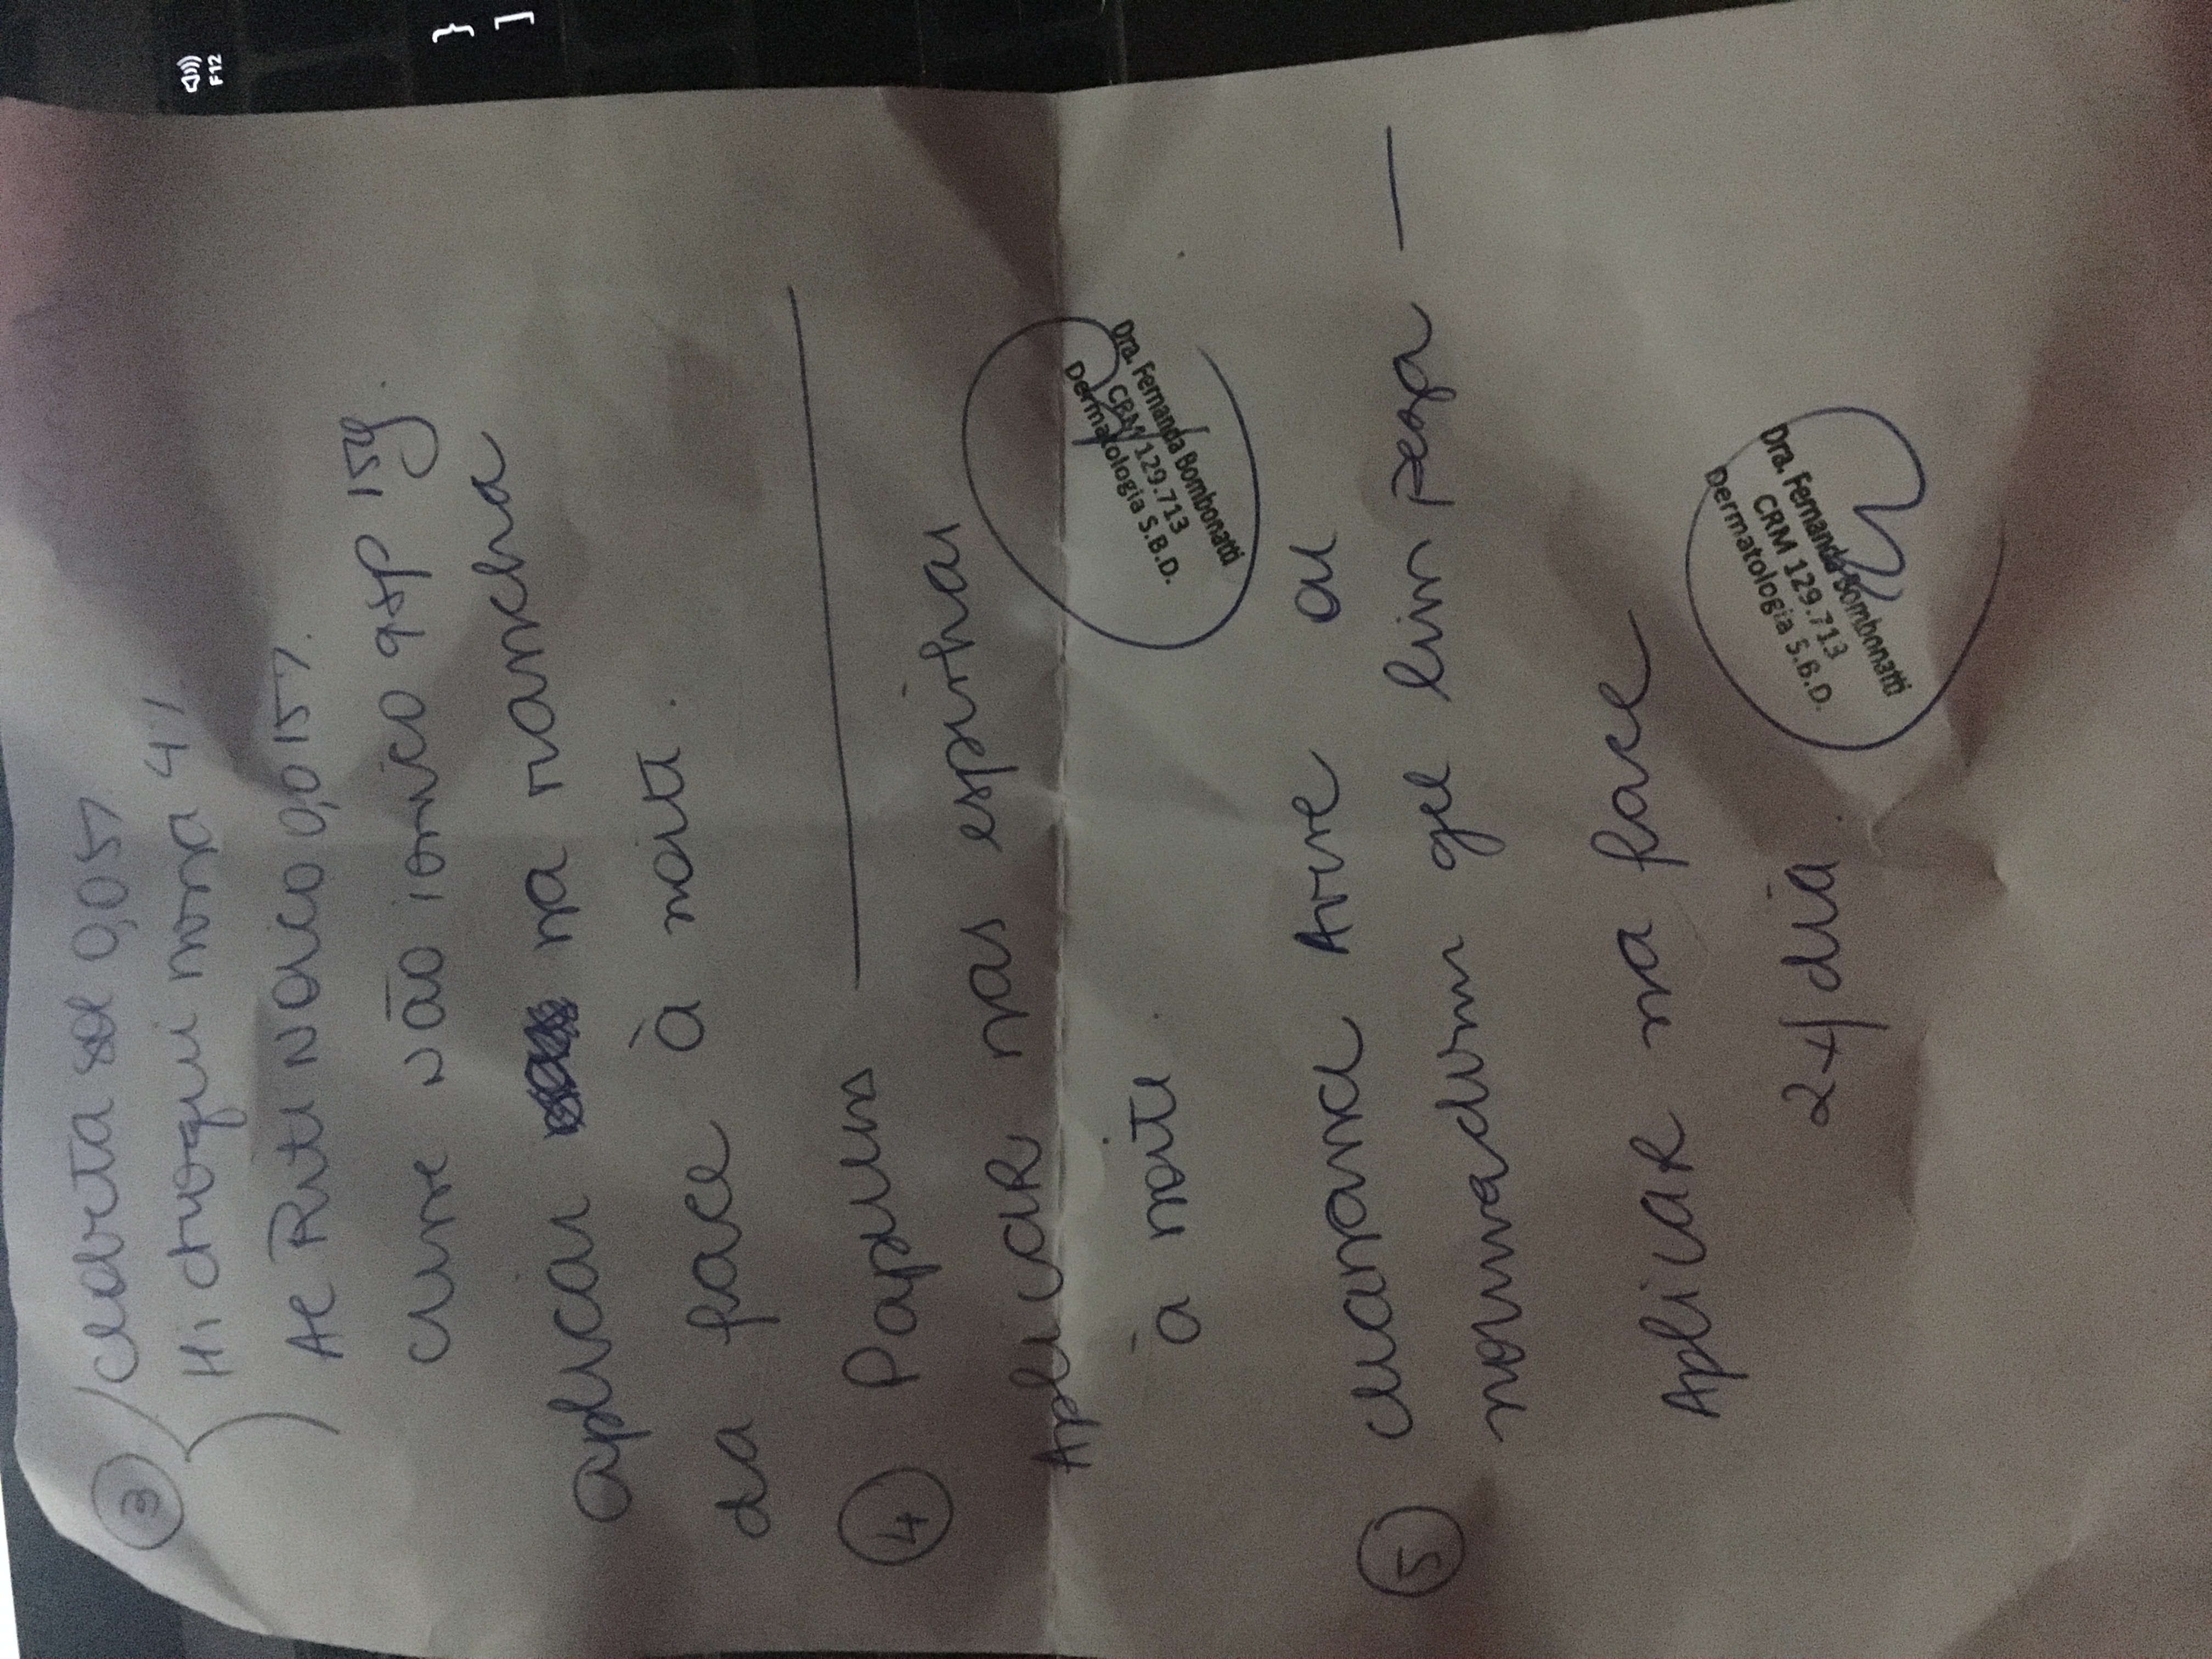 3
Hidroquinona 4%
Ac Retinoico 0,015%.
creme não ionico qsp 15g.
aplicar na mancha
da face à noite.
4
Aplicar nas espinhas
à noite.
Dra. Fernanda Bombonatti
CRM 129.713
Dermatologia S.B.D.
5
normaderm gel limpeza
Aplicar na face
2x/dia.
Dra. Fernanda Bombonatti
CRM 129.713
Dermatologia S.B.D.
F12
}
]